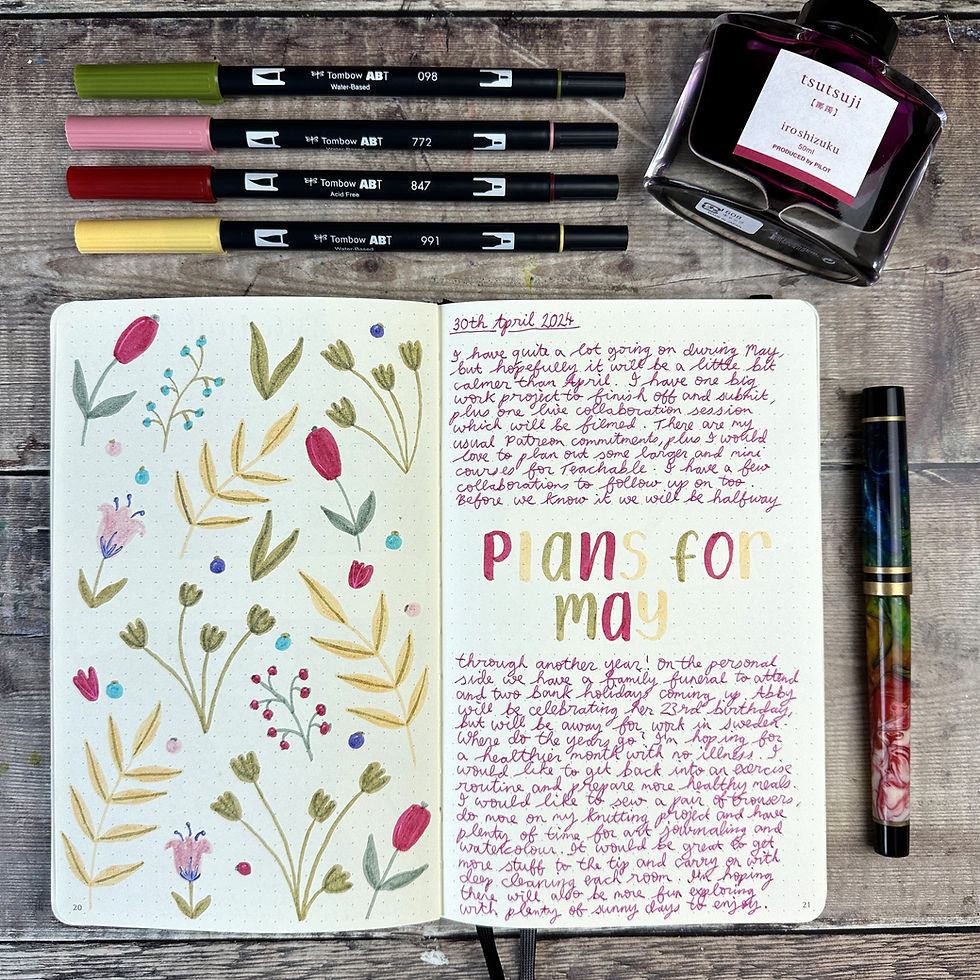 Tombow ABT 098
Water-Based
Tombow ABT 772
Water-Based
Tombow ABT 847
Acid Free
Tombow ABT 991
Water-Based
tsutsuji
【躑躅】
iroshizuku
50ml
PRODUCED by PILOT
30th April 2024
I have quite a lot going on during May,
but hopefully it will be a little bit
calmer than April. I have one big
work project to finish off and submit,
plus one live collaboration session
which will be filmed. There are my
usual Patreon commitments, plus I would
love to plan out some larger and mini
courses for Teachable. I have a few
collaborations to follow up on too.
Before we know it we will be halfway
Plans for
may
through another year! On the personal
side we have a family funeral to attend
and two bank holidays coming up. Abby
will be celebrating her 23rd birthday,
but will be away for work in Sweden.
Where do the years go? I'm hoping for
a healthier month with no illness. I
would like to get back into an exercise
routine and prepare more healthy meals.
I would like to sew a pair of trousers,
do more on my knitting project and have
plenty of time for art journaling and
watercolour. It would be great to get
more stuff to the tip and carry on with
deep cleaning each room. I'm hoping
there will also be more fun exploring
with plenty of sunny days to enjoy.
20
21